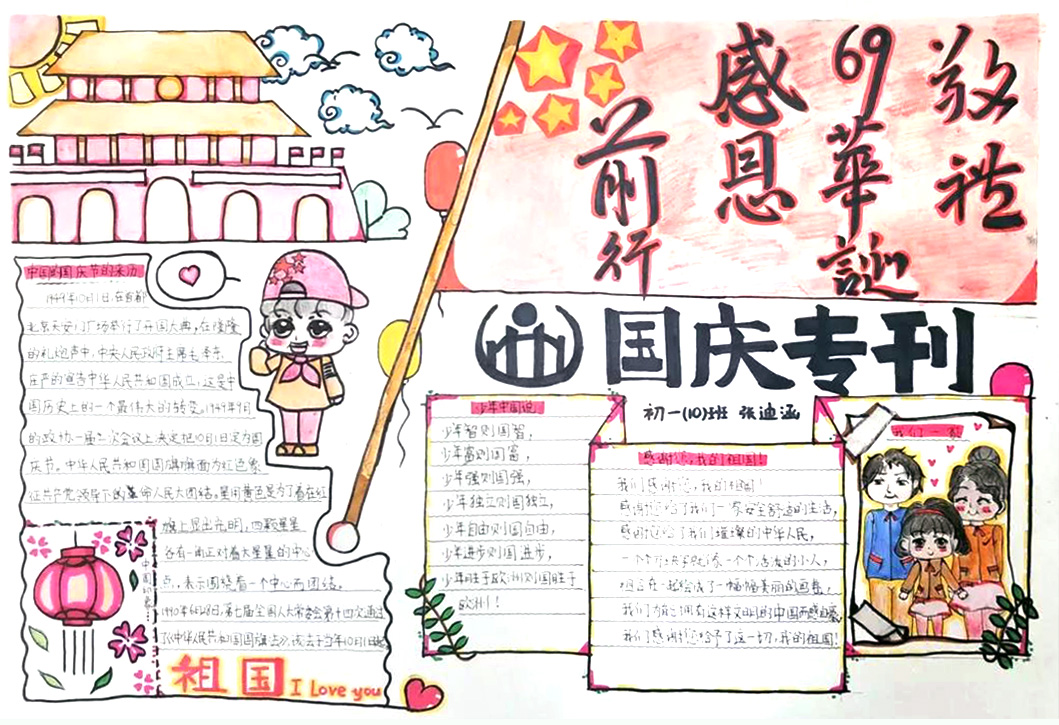 敬礼
69華誕
感恩
前行
国庆专刊
初一(10)班 张迪涵
中国的国庆节的来历
1949年10月1日,在首都
北京天安门广场举行了开国大典,在隆隆
的礼炮声中,中央人民政府主席毛泽东
在庄严宣告中华人民共和国成立,这是中
国历史上的一个最伟大的转变。1949年9月
的政协一届二次会议上决定把10月1日定为国
庆节。中华人民共和国国旗旗面为红色象
征共产党领导下的革命人民大团结。星用黄色是为了着在红
旗上显出光明,四颗星星
各有一角正对着大星星的中心
点,表示围绕着一个中心而团结。
1990年6月28日,第七届全国人大常委会第十四次通过
了《中华人民共和国国旗法》,该法于当年10月1日起
中国印象
祖国 I Love you
少年中国说
少年智则国智,
少年富则国富,
少年强则国强,
少年独立则国独立,
少年自由则国自由,
少年进步则国进步,
少年胜于欧洲则国胜于
欧洲!
感谢您,我的祖国!
我们感谢您,我的祖国!
感谢您给了我们一家安全舒适的生活,
感谢您给了我们璀璨的中华人民,
一个个
一个个活泼的小人,
组合在一起绘成了一幅幅美丽的画卷,
我们为能拥有这样文明的中国而感自豪,
我们感谢您给予了这一切,我的祖国!
我们一家